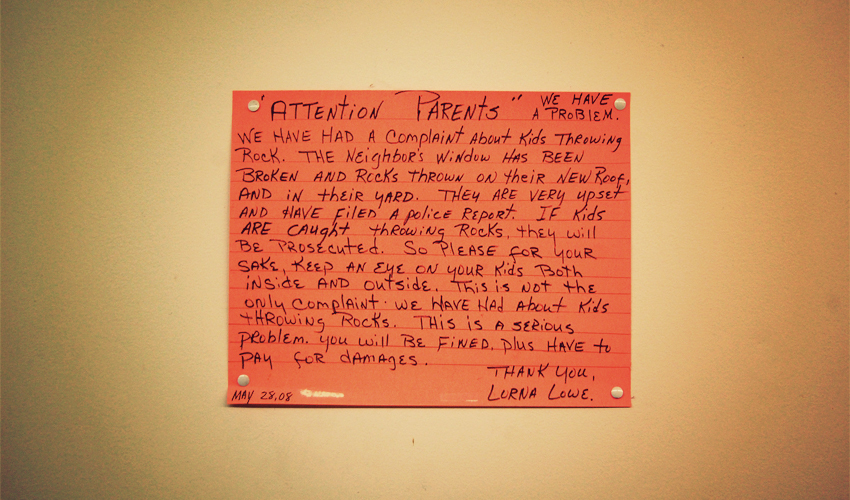 "ATTENTION PARENTS" WE HAVE
A PROBLEM.
WE HAVE HAD A COMPLAINT ABOUT KIDS THROWING
ROCK. THE NEIGHBOR'S WINDOW HAS BEEN
BROKEN AND ROCKS THROWN ON THEIR NEW ROOF,
AND IN THEIR YARD. THEY ARE VERY UPSET
AND HAVE FILED A POLICE REPORT. IF KIDS
ARE CAUGHT THROWING ROCKS, THEY WILL
BE PROSECUTED. SO PLEASE FOR YOUR
SAKE, KEEP AN EYE ON YOUR KIDS BOTH
INSIDE AND OUTSIDE. THIS IS NOT THE
ONLY COMPLAINT. WE HAVE HAD ABOUT KIDS
THROWING ROCKS. THIS IS A SERIOUS
PROBLEM. YOU WILL BE FINED. PLUS HAVE TO
PAY FOR DAMAGES.
THANK YOU,
MAY 28,08 LORNA LOWE.